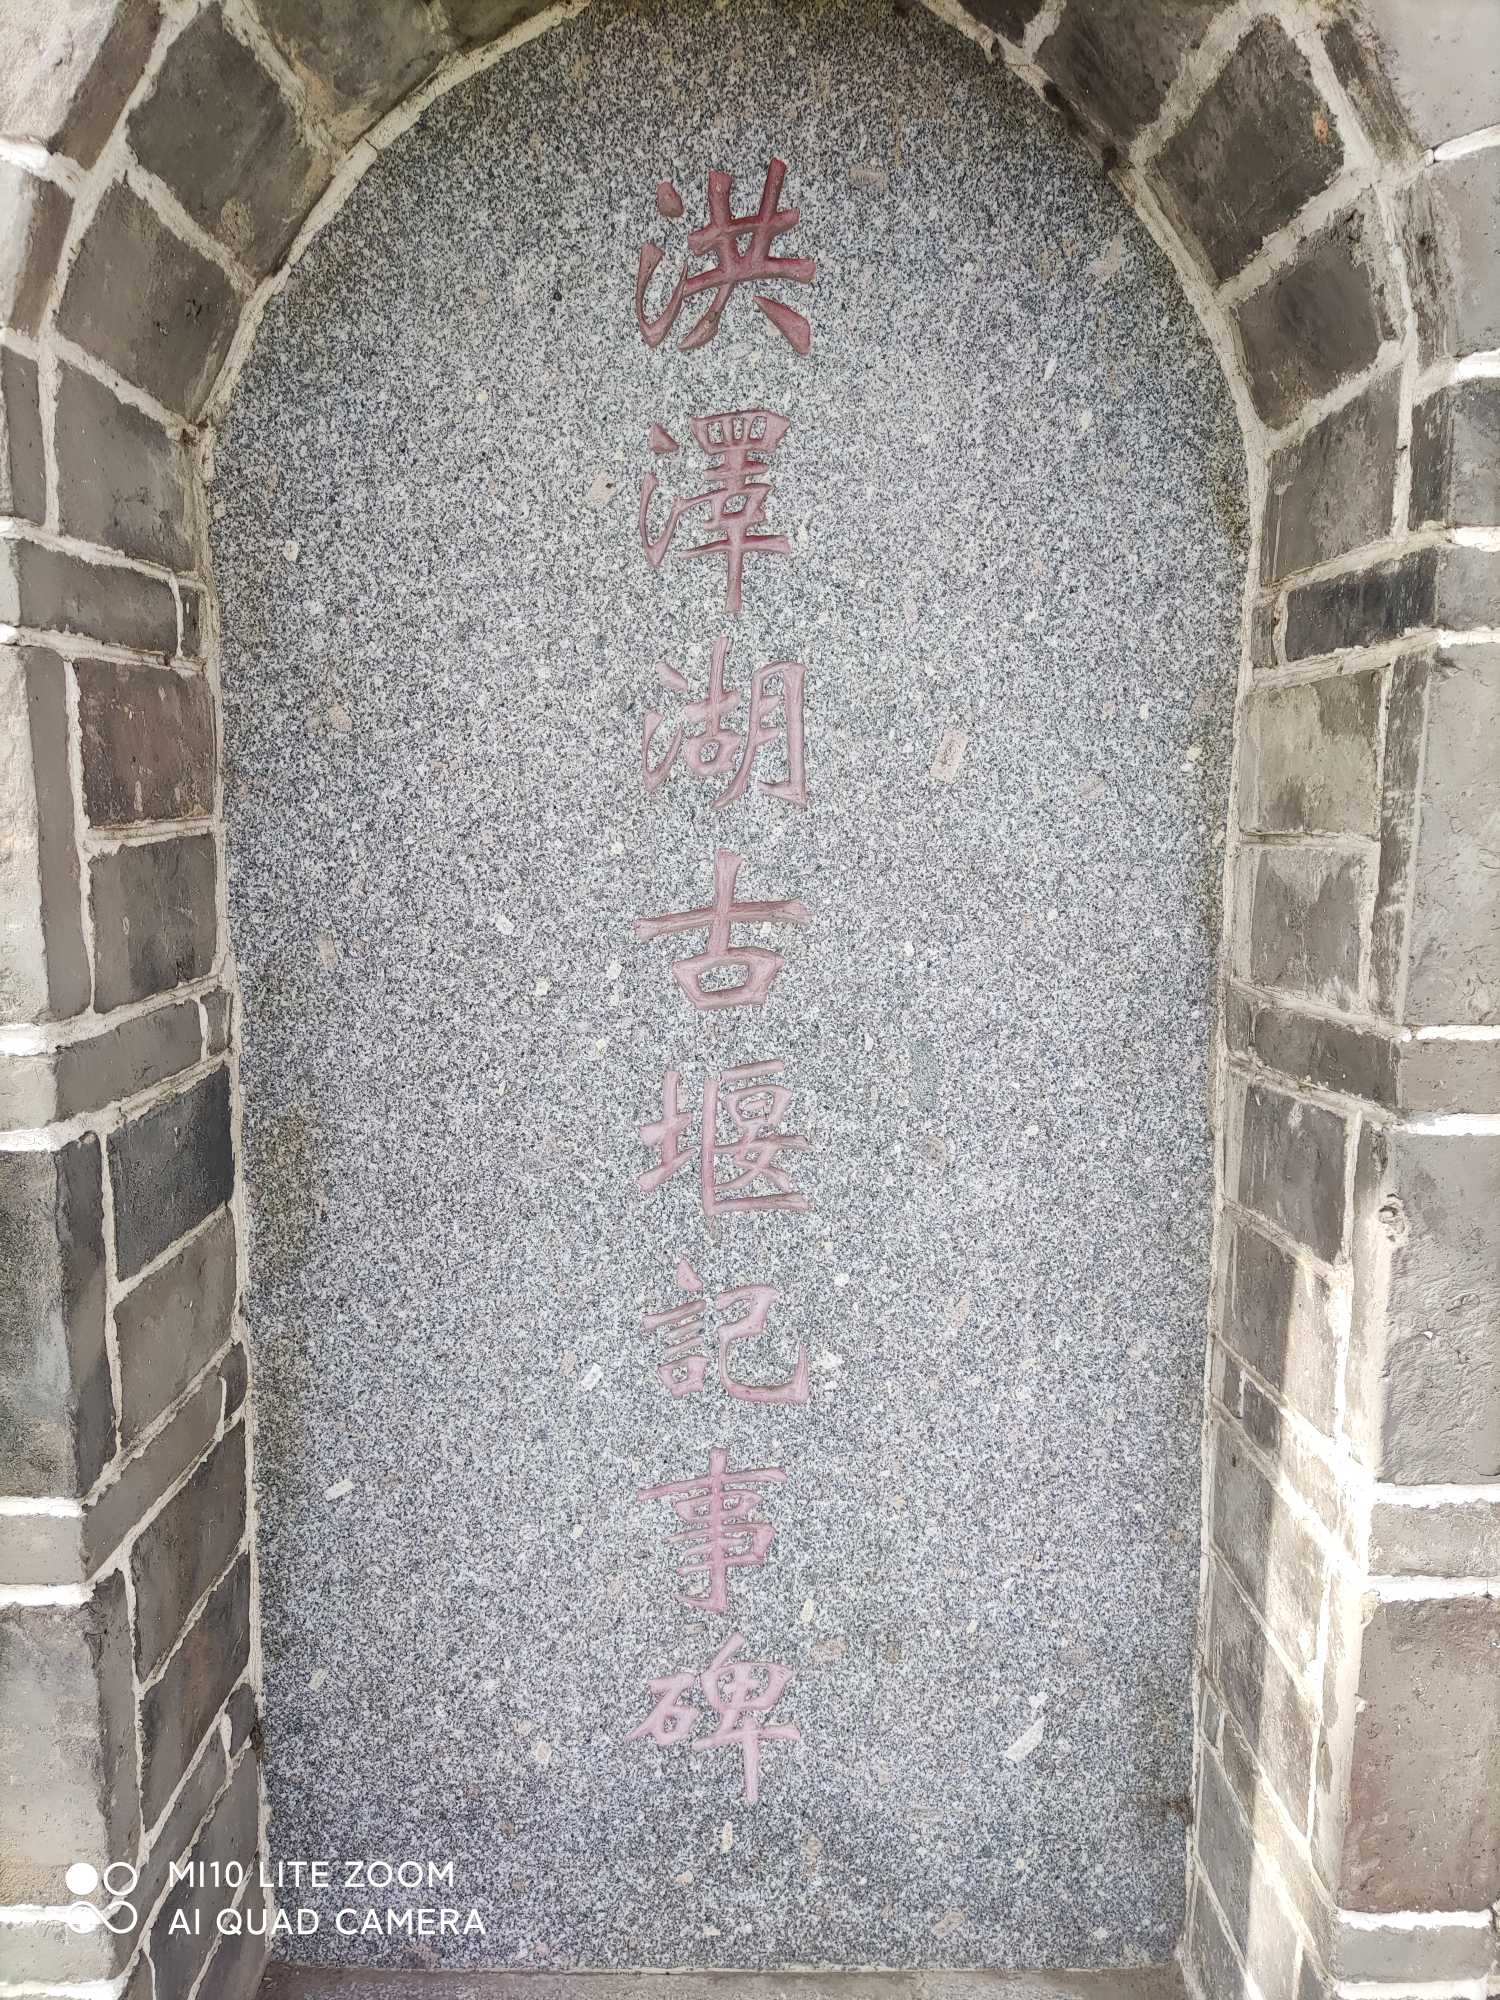 洪澤湖古堰記事碑
MI10 LITE ZOOM
AI QUAD CAMERA